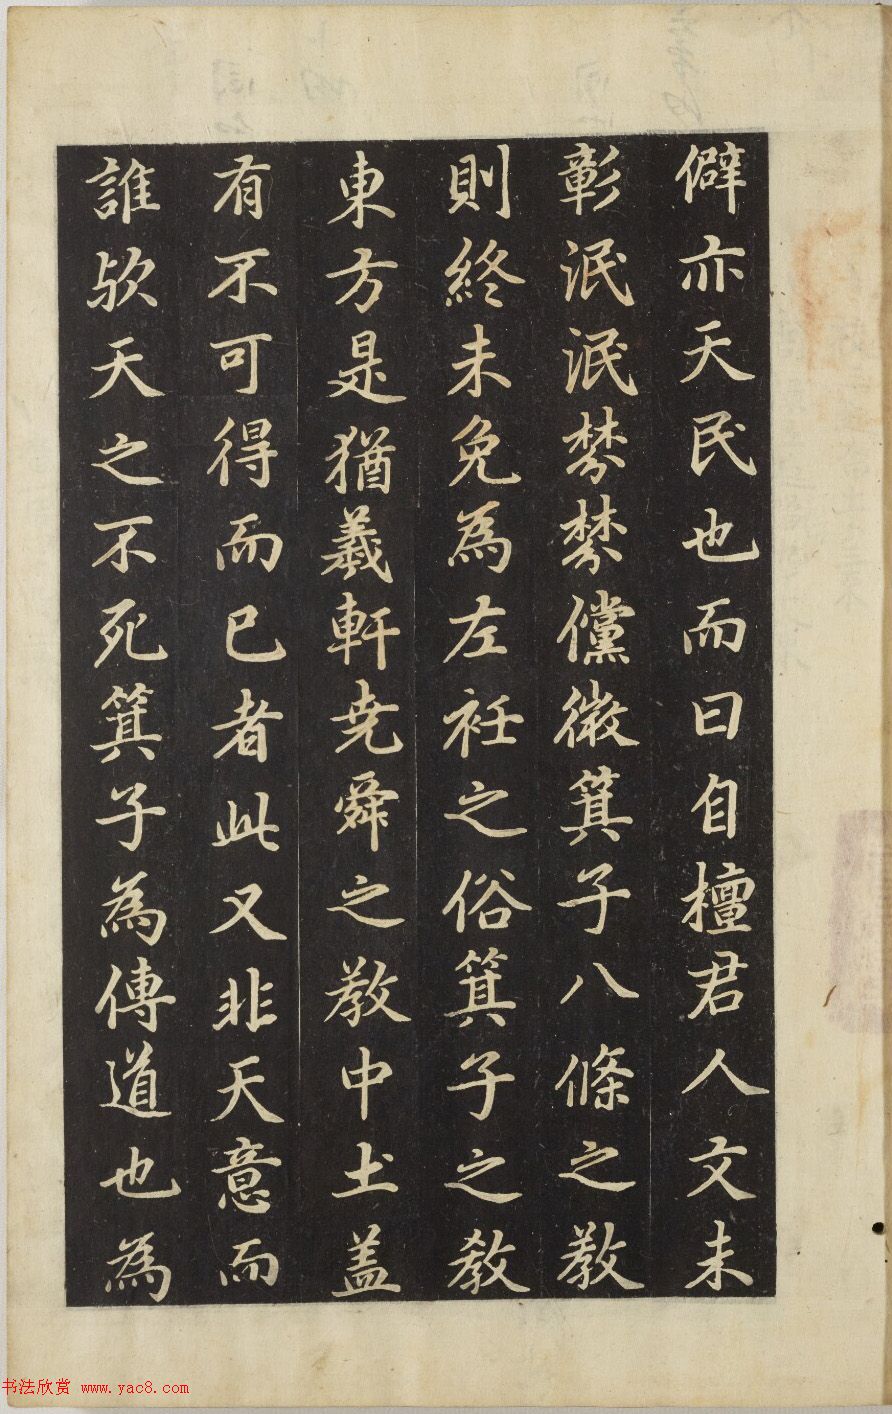 僻亦天民也而曰自檀君人文未
彰泯泯棼棼儻微箕子八條之教
則終未免為左衽之俗箕子之教
東方是猶羲軒堯舜之教中土盖
有不可得而已者此又非天意而
誰欤天之不死箕子為傳道也為
书法欣赏 www.yac8.com